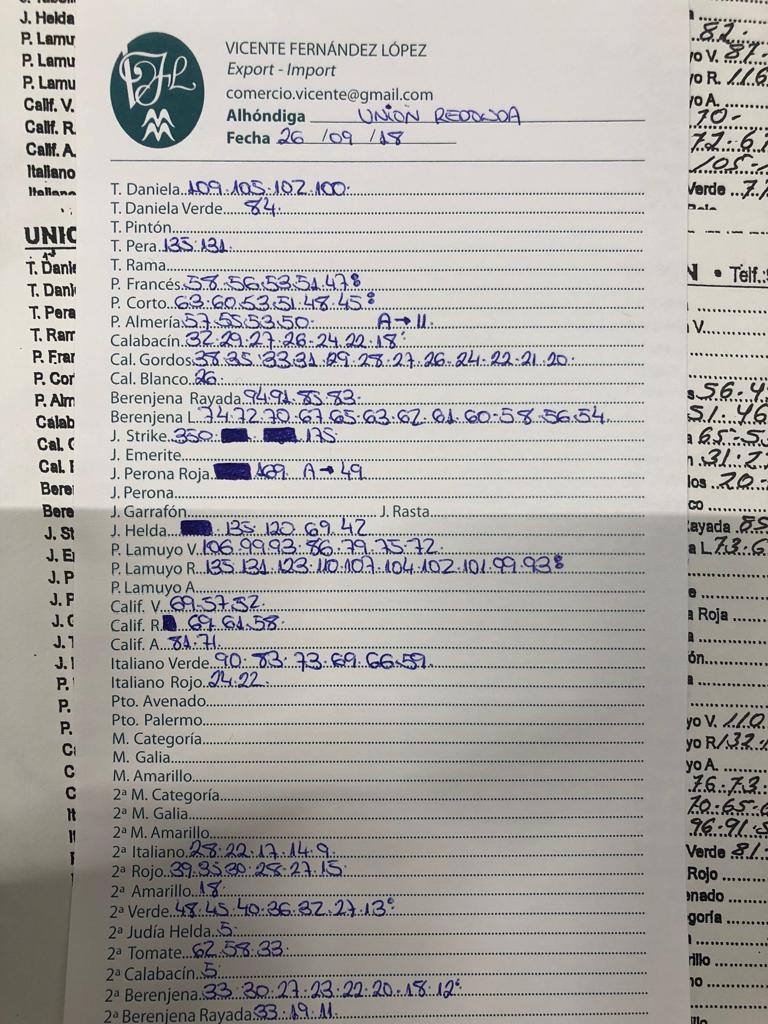 VICENTE FERNÁNDEZ LÓPEZ
Export - Import
comercio.vicente@gmail.com
Alhóndiga UNION REDONDA
Fecha 26 / 09 / 18
T. Daniela 109·105·102·100·
T. Daniela Verde 84·
T. Pintón
T. Pera 135·131·
T. Rama
P. Francés 58·56·53·51·47
P. Corto 63·60·53·51·48·45
P. Almería 57·55·53·50· A→11
Calabacín 32·29·27·26·24·22·18
Cal. Gordos 38·35·33·31·29·28·27·26·24·22·21·20·
Cal. Blanco 26·
Berenjena Rayada 94·91·85·83·
Berenjena L. 74·72·70·67·65·63·62·61·60·58·56·54
J. Strike 350· 175·
J. Emerite
J. Perona Roja 169 A→49
J. Perona
J. Garrafón J. Rasta
J. Helda 135·120·69·42
P. Lamuyo V. 106·99·93·86·79·75·72·
P. Lamuyo R. 135·131·123·110·107·104·102·101·99·93
P. Lamuyo A
Calif. V. 69·57·52·
Calif. R. 69·61·58·
Calif. A. 81·71·
Italiano Verde 90·83·73·69·66·59
Italiano Rojo 24·22·
Pto. Avenado
Pto. Palermo
M. Categoría
M. Galia
M. Amarillo
2ª M. Categoría
2ª M. Galia
2ª M. Amarillo
2ª Italiano 28·22·17·14·9
2ª Rojo 39·35·30·28·27·15·
2ª Amarillo 18·
2ª Verde 48·45·40·36·32·27·13
2ª Judía Helda 5·
2ª Tomate 62·58·33·
2ª Calabacín 5·
2ª Berenjena 33·30·27·23·22·20·18·12
2ª Berenjena Rayada 33·19·11
J. Helda
P. Lamu
P. Lamu
P. Lamu
Calif. V.
Calif. R
Calif. A
Italiano
UNIC
T. Dani
T. Dani
T. Pera
T. Ram
P. Frar
P. Cor
P. Alm
Calab
Cal. G
Cal. I
Bere
Bere
J. St
J. Er
J. P
J. P
82·
V. 87
R. 116
70-
72·67
105
Verde 7
Telf.:
V.
56·4
51·46
65-5
31·2
20-
ayada 85
L. 73·6
Roja
V. 110
R 132
A.
76·73
70·65·6
96-91
Verde 81
Rojo
enado
goría
rillo